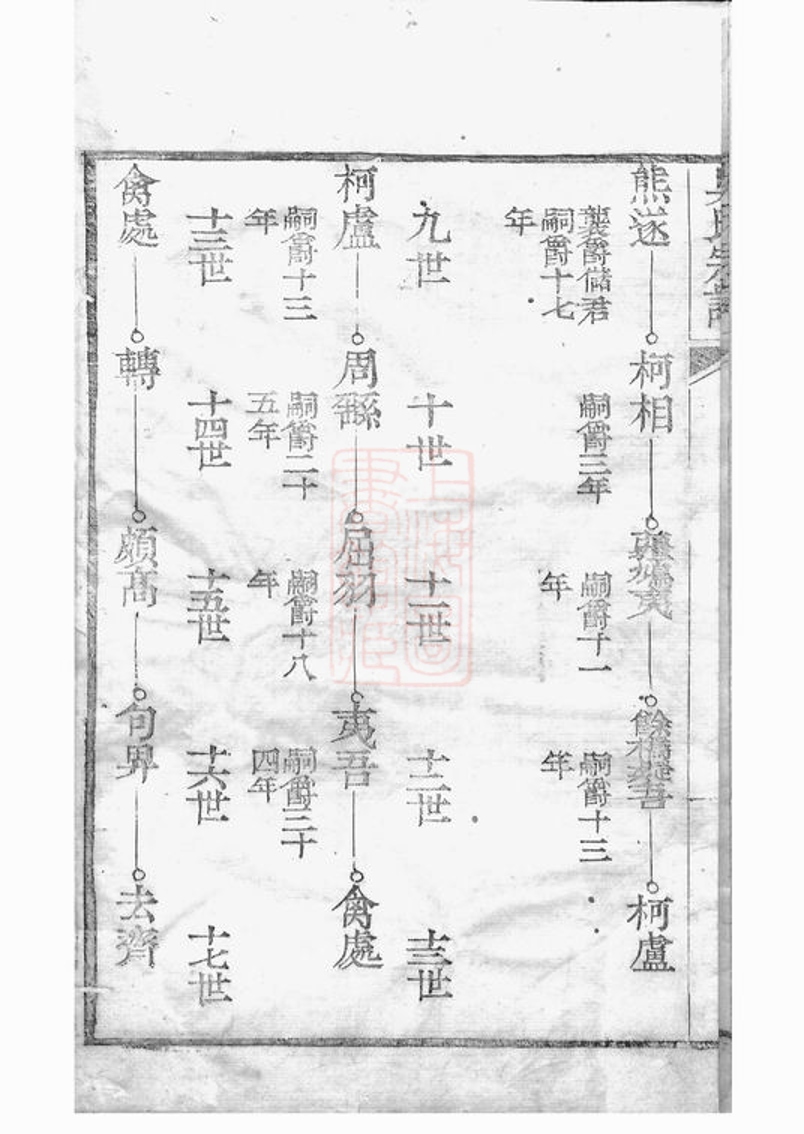 吳氏宗譜
熊遂 柯相 彊鳩夷 餘橋疑吾 柯盧
襲爵儲君 嗣爵三年 嗣爵十一 嗣爵十三
嗣爵十七 年 年
年
九世 十世 十一世 十二世 十三世
柯盧 周繇 屈羽 夷吾 禽處
嗣爵十三 嗣爵二十 嗣爵十八 嗣爵三十
年 五年 年 四年
十三世 十四世 十五世 十六世 十七世
禽處 轉 頗高 句畀 去齊